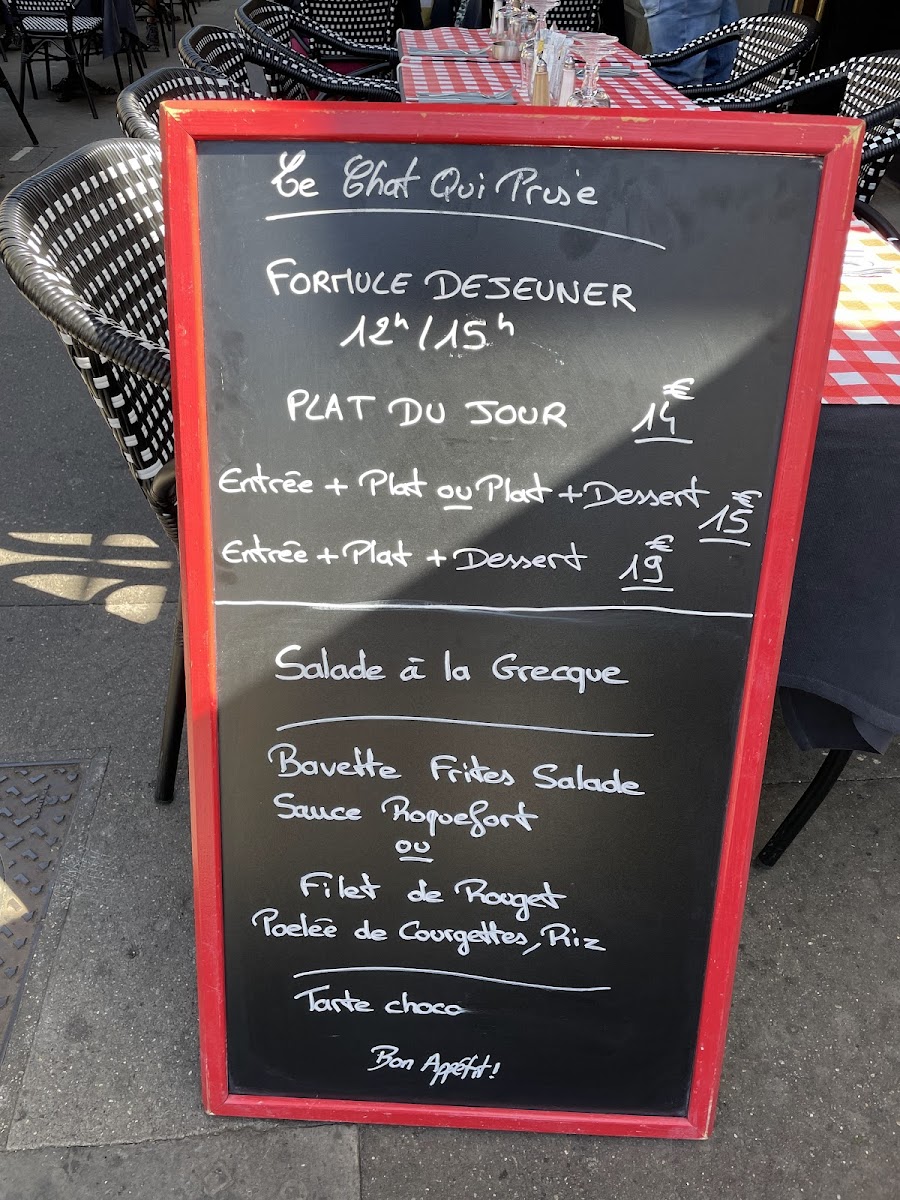 Le Chat Qui Prise
FORMULE DEJEUNER
12h/15h
PLAT DU JOUR 14€
Entrée + Plat ou Plat + Dessert 15€
Entrée + Plat + Dessert 19€
Salade à la Grecque
Bavette Frites Salade
Sauce Roquefort
ou
Filet de Rouget
Poelée de Courgettes, Riz
Tarte choco
Bon Appétit!